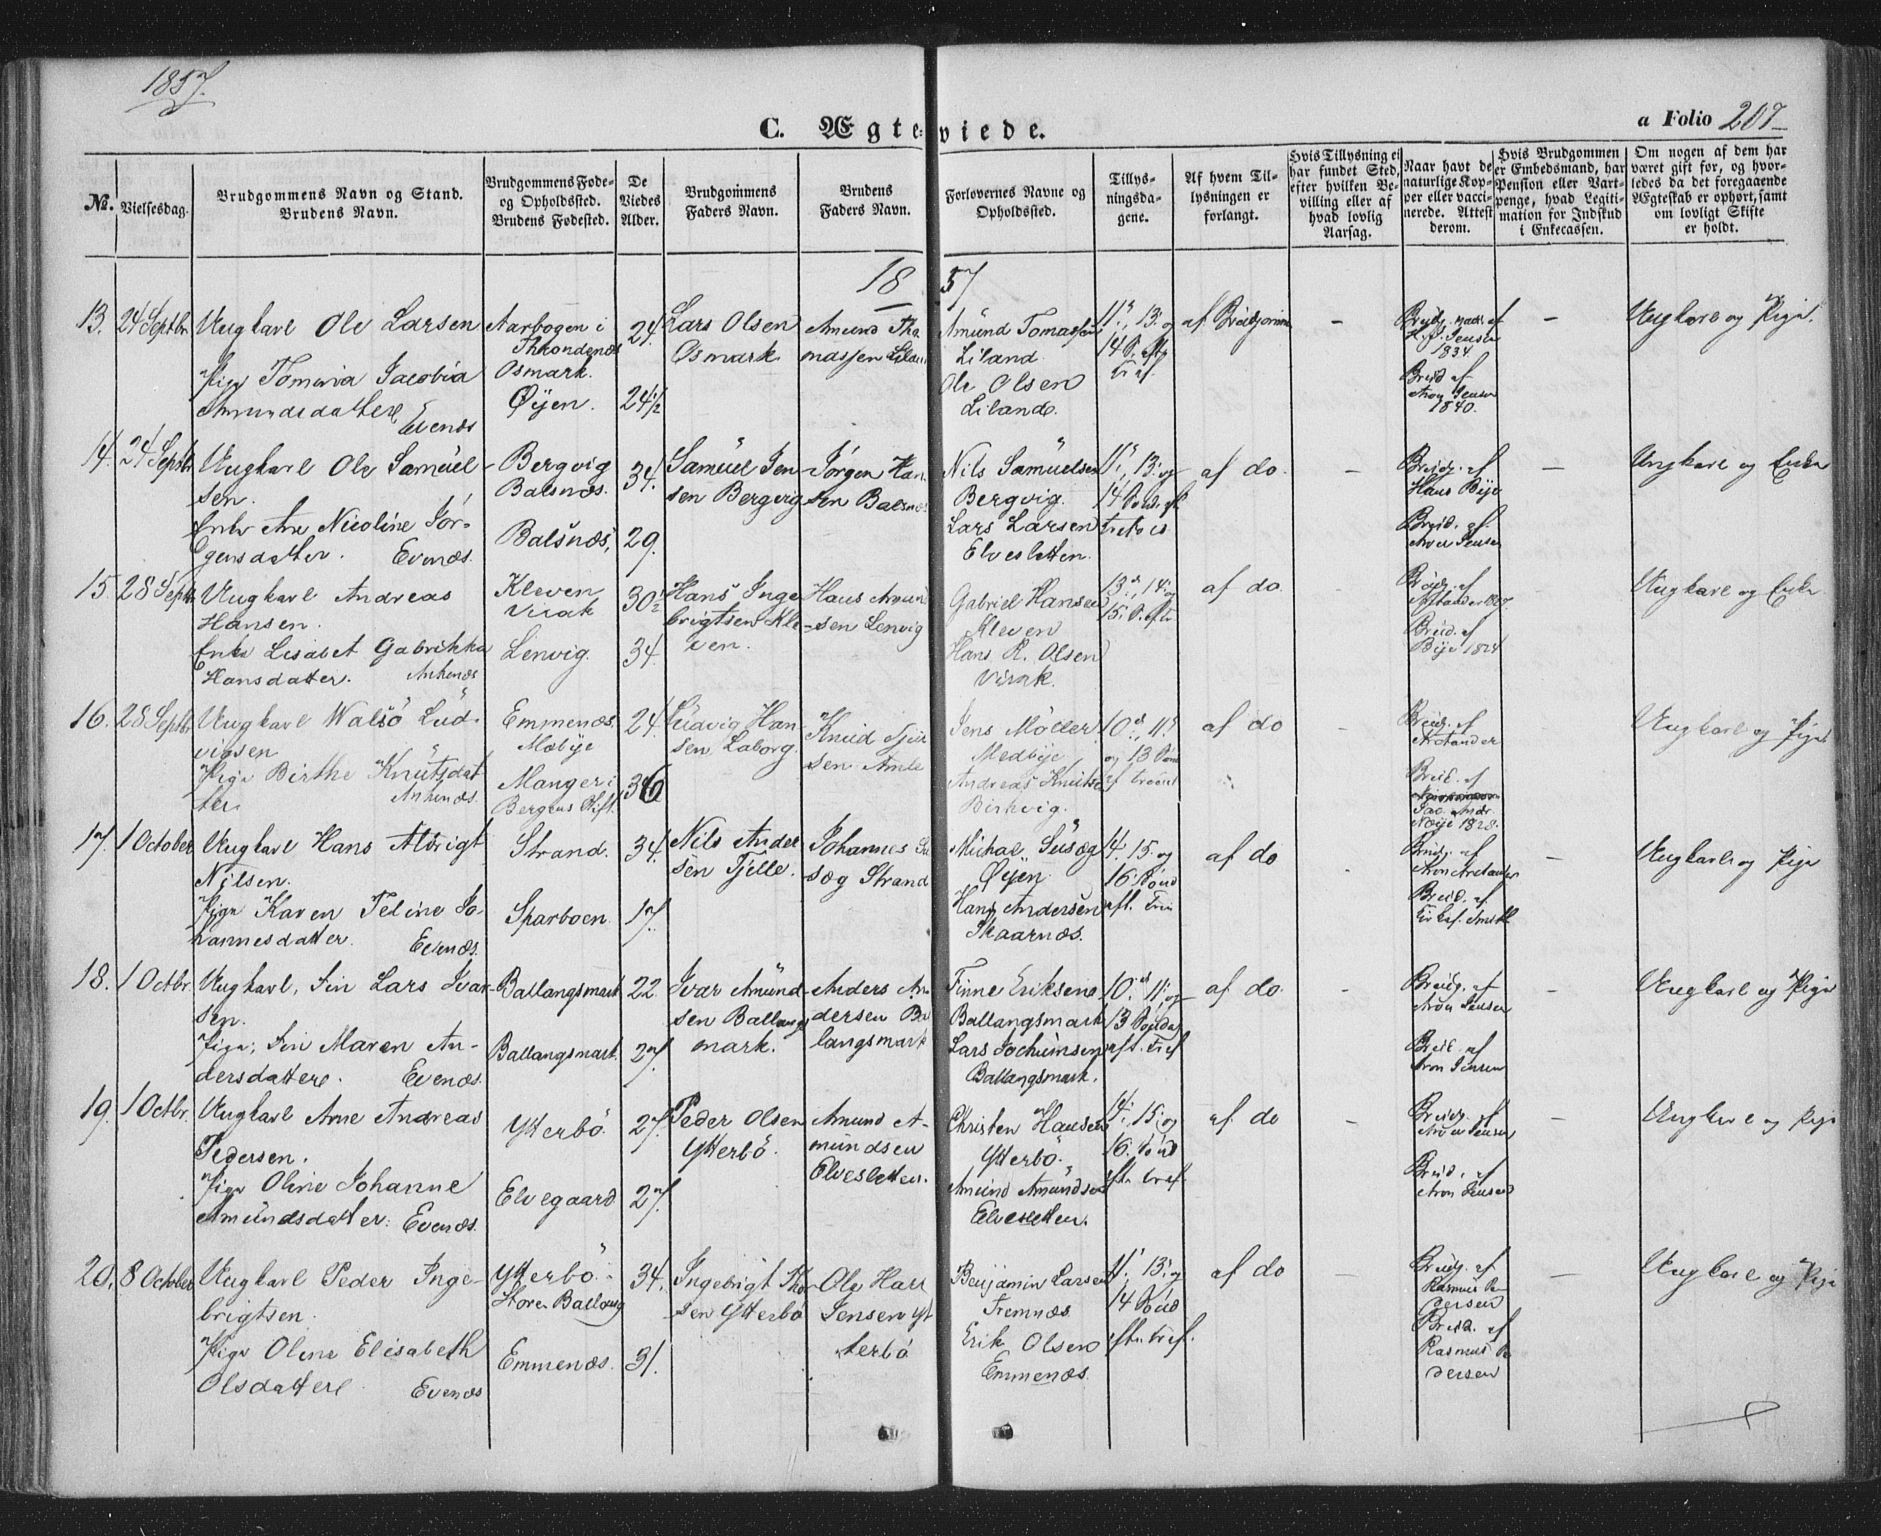 1857.
C. Ægteviede.
a Folio 207
№.
Vielsesdag.
Brudgommens Navn og Stand.
Brudens Navn.
Brudgommens Føde-
og Opholdssted.
Brudens Fødested.
De
Viedes
Alder.
Brudgommens
Faders Navn.
Brudens
Faders Navn.
Forlovernes Navne og
Opholdssted.
Tillys-
ningsda-
gene.
Af hvem Til-
lysningen er
forlangt.
Hvis Tillysning ei
har fundet Sted,
efter hvilken Be-
villing eller af
hvad lovlig
Aarsag.
Naar havt de
naturlige Kop-
per eller vacci-
nerede. Attest
derom.
Hvis Brudgommen
er Embedsmand, har
Pension eller Vart-
penge, hvad Legiti-
mation for Indskud
i Enkecassen.
Om nogen af dem har
været gift før, og hvor-
ledes da det foregaaende
Ægteskab er ophørt, samt
om lovligt Skifte
er holdt.
1857
13. 24 Septbr
Ungkarl Ole Larsen
Pige Tomina Jacobia
Amundsdatter
Evenæs
Aarbogen i
Throndenæs
Osmark.
Øyen.
24.
24 1/2
Lars Olsen
Osmark
Amund Tho
massen Liland
Amund Tomassen
Liland.
Ole Olsen
Liland.
11, 13 og
14 S. eft
tref
af Brudgommen
-
Brudg. vacc. af
Jensen
1834.
Brud af
Aron Jensen
1840.
-
Ungkarl og Pige.
14. 24 Septbr
Ungkarl Ole Samuel
sen.
Enke Ane Nicoline Jör-
gensdatter. Evenæs.
Bergvig
Balsnæs.
Balsnæs,
34.
29.
Samuel Jen
sen Bergvig
Jörgen Han
sen Balsnæs
Nils Samuelsen
Bergvig.
Lars Larsen
Elvesletten.
11, 13 og
14 Sönd. eft
trefois
af do.
-
Brudg. af
Hans Bye
Brud. af
Aron Jensen
-
Ungkarl og Enke
15. 28 Septb
Ungkarl Andreas
Hansen.
Enke Lisabet Gabrikka
Hansdatter. Ankenæs
Kleven
Virak
Lenvig.
30 1/2
34.
Hans Inge
brigtsen Kle
ven.
Hans Amun
sen Lenvig
Gabriel Hansen
Kleven
Hans R. Olsen
Virak.
13, 14 og
15. S. eftr
af do.
Brudg. af
Brud. af
Bye 1824
Ungkarl og Enke
16. 28 Septbr
Ungkarl Walsö Lud-
vigsen
Pige Birthe Knutsdat
ter Ankenæs.
Emmenæs.
Mæbye
Manger i
Bergens Stift.
24.
36
Ludvig Han-
sen Laborg.
Knud
sen
Jens Möller
Medbye
Andreas Knutsen
Birkvig.
10, 11
og 13 Sönd
ef trönit
af do
-
Brudg. af
Arctander
Brud. af
Jac. Andr.
Næye 1828.
Ungkarl og Pige
17. 1 October
Ungkarl Hans Albrigt
Nilsen.
Pige Karen Peline Jo-
hannesdatter. Evenæs.
Strand.
Sparboen.
34.
17.
Nils Ander
sen Fjelle.
Johannes Su
sæg Strand
Michae Susæg
Øyen.
Hans Andersen
Skaarnæs.
14. 15. og
16 Sönd
eft. Trin
af do
Brudg. af
Aron Arctander
Brud. af
-
Ungkarl og Pige
18. 1 Octbr.
Ungkarl, Fin Lars Ivar-
sen.
Pige, Fin Maren An-
dersdatter. Evenæs.
Ballangsmark
Ballangsmark.
22.
27.
Ivar Amund-
sen Ballangs
mark.
Anders An
dersen Ba
langsmark
Finne Eriksen
Ballangsmark
Lars Jochumsen
Ballangsmark.
10, 11, og
13 Söndag
eft. tref
af do.
-
Brudg. af
Aron Jensen
Brud. af
Aron Jensen
-
Ungkarl og Pige
19. 1 Octbr.
Ungkarl Arne Andreas
Pedersen.
Pige Oline Johanne
Amundsdatter. Evenæs.
Ytterbö.
Elvegaard
27.
27.
Peder Olsen
Ytterbö.
Amund A-
mundsen
Elvesletten.
Christen Hansen
Ytterbö.
Amund Amundsen
Elvesletten.
14, 15. og
16. Sönd
eftr tref.
af do
-
Brudg. af
Aron Jensen
Brud. af
Aron Jensen
-
Ungkarl og Pige
20. 8 October
Ungkarl Peder Inge-
brigtsen.
Pige Oline Elisabeth
Olsdatter. Evenæs
Ytterbö.
Store Ballang
Emmenæs.
34.
31.
Ingebrigt Thor
sen Ytterbö
Ole Hart
Jensen Yt
terbö
Benjamin Larsen
Fremnæs
Erik Olsen
Emmenæs.
11, 13. og
14 Sönd
eftr tref.
af do
-
Brudg. af
Rasmus Pe
dersen
Brud. af
Rasmus Pe
dersen
-
Ungkarl og Pige